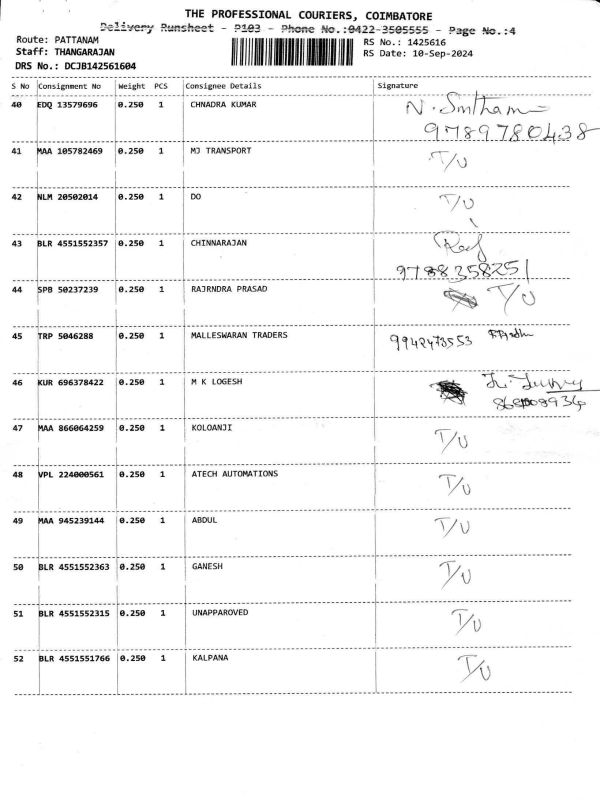 THE PROFESSIONAL COURIERS, COIMBATORE
Delivery Runsheet - P103 - Phone No.:0422-3505555 - Page No.:4
Route: PATTANAM
RS No.: 1425616
Staff: THANGARAJAN
RS Date: 10-Sep-2024
DRS No.: DCJB142561604
S No Consignment No Weight PCS Consignee Details Signature
40 EDQ 13579696 0.250 1 CHNADRA KUMAR
9789780438
41 MAA 105782469 0.250 1 MJ TRANSPORT T/U
42 NLM 20502014 0.250 1 DO T/U
43 BLR 4551552357 0.250 1 CHINNARAJAN
9788358251
44 SPB 50237239 0.250 1 RAJRNDRA PRASAD T/U
45 TRP 5046288 0.250 1 MALLESWARAN TRADERS 9942473553
46 KUR 696378422 0.250 1 M K LOGESH
47 MAA 866064259 0.250 1 KOLOANJI T/U
48 VPL 224000561 0.250 1 ATECH AUTOMATIONS T/U
49 MAA 945239144 0.250 1 ABDUL T/U
50 BLR 4551552363 0.250 1 GANESH T/U
51 BLR 4551552315 0.250 1 UNAPPAROVED T/U
52 BLR 4551551766 0.250 1 KALPANA T/U